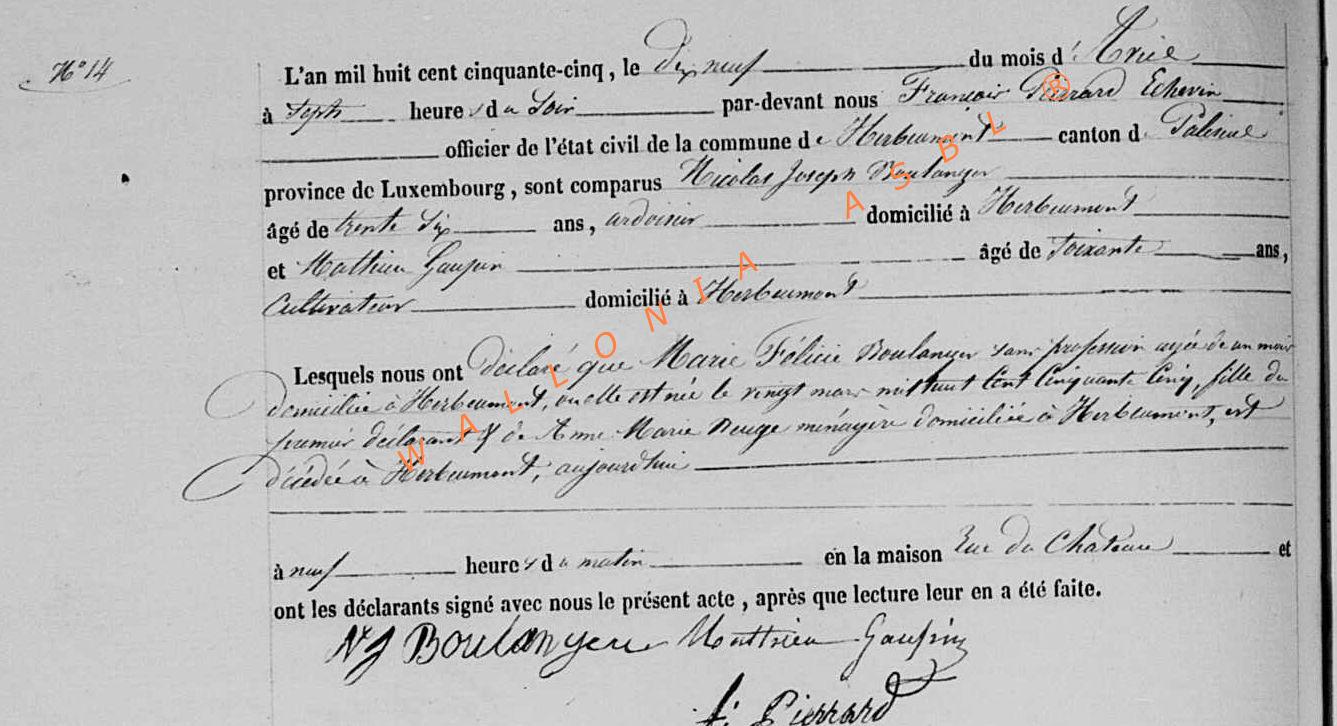 N° 14
L'an mil huit cent cinquante-cinq, le dix neuf du mois d'Avril
à Sept heures du Soir par-devant nous François Pierrard Echevin
officier de l'état civil de la commune de Herbeumont canton d Paliseul
province de Luxembourg, sont comparus Nicolas Joseph Boulanger
âgé de trente Six ans, ardoisier domicilié à Herbeumont
et Mathieu Gaupin âgé de Soixante ans,
Cultivateur domicilié à Herbeumont
Lesquels nous ont déclaré que Marie Félicie Boulanger sans profession agée de un mois
domiciliée à Herbeumont, où elle est née le vingt mars mil huit Cent Cinquante Cinq, fille du
premier déclarant & de Anne Marie ménagère domiciliée à Herbeumont, est
décédée à Herbeumont, aujourdhui
à neuf heures du matin en la maison Rue du Chateau et
ont les déclarants signé avec nous le présent acte, après que lecture leur en a été faite.
NJ Boulanger Matthieu Gaupin
f. Pierrard
WALLONIA ASBL ®